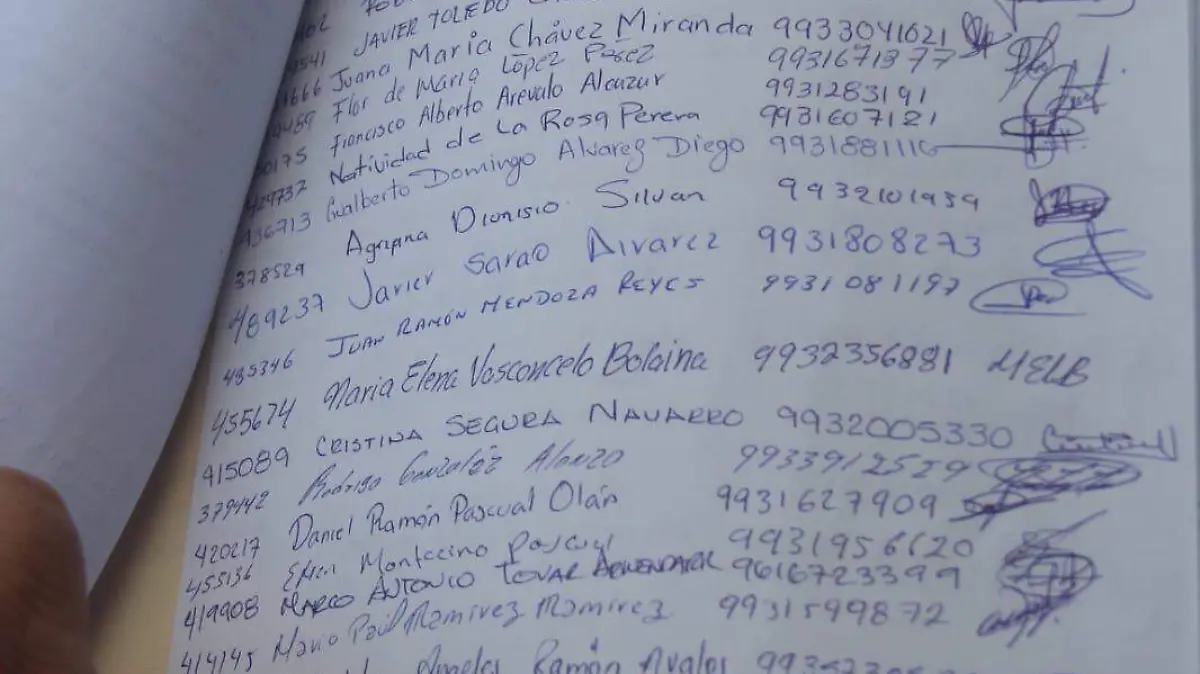 JAVIER TOLEDO
Juana María Chávez Miranda 9933041621
Flor de María López Pérez 9931671377
Francisco Alberto Arevalo Alcazar 9931283191
Natividad de La Rosa Perera 9931607121
Gualberto Domingo Alvarez Diego 9931881110
378529 Agripina Dionisio Silvan 9932101959
489237 Javier Sarao Alvarez 9931808273
485346 JUAN RAMÓN MENDOZA REYES 9931081197
455674 Maria Elena Vasconcelo Bolaina 9932356881 MELB
415089 CRISTINA SEGURA NAVARRO 9932005330
379442 Rodrigo González Alonzo 9933912529
420217 Daniel Ramón Pascual Olán 9931627909
455136 Efren Montecino Pascual 9931956620
419908 MARCO ANTONIO TOVAR 9616723399
414145 Mario Ramirez Ramirez 9931599872
Angeles Ramón Avalos